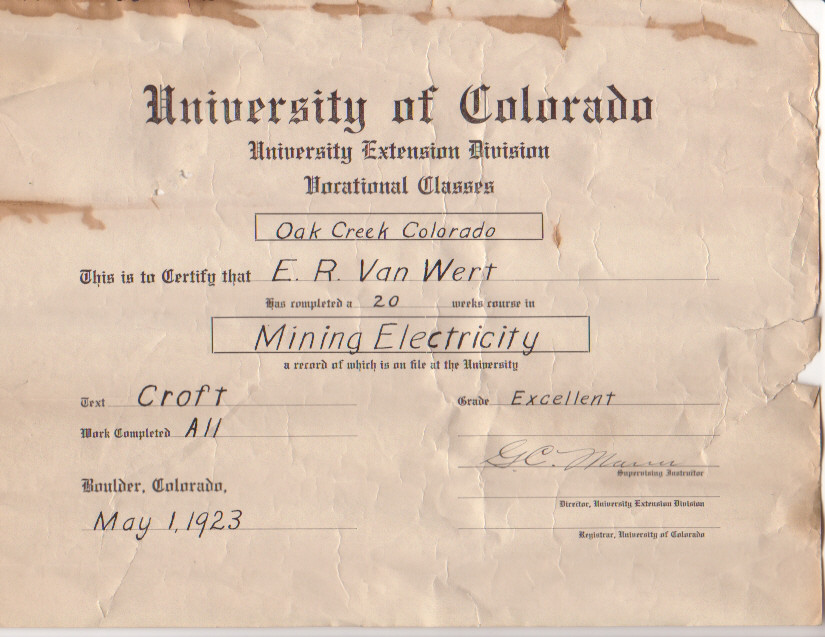 University of Colorado
University Extension Division
Vocational Classes
Oak Creek Colorado
This is to Certify that E. R. Van Wert
Has completed a 20 weeks course in
Mining Electricity
a record of which is on file at the University
Text Croft
Grade Excellent
Work Completed All
G.C.
Supervising Instructor
Boulder, Colorado,
Director, University Extension Division
May 1, 1923
Registrar, University of Colorado